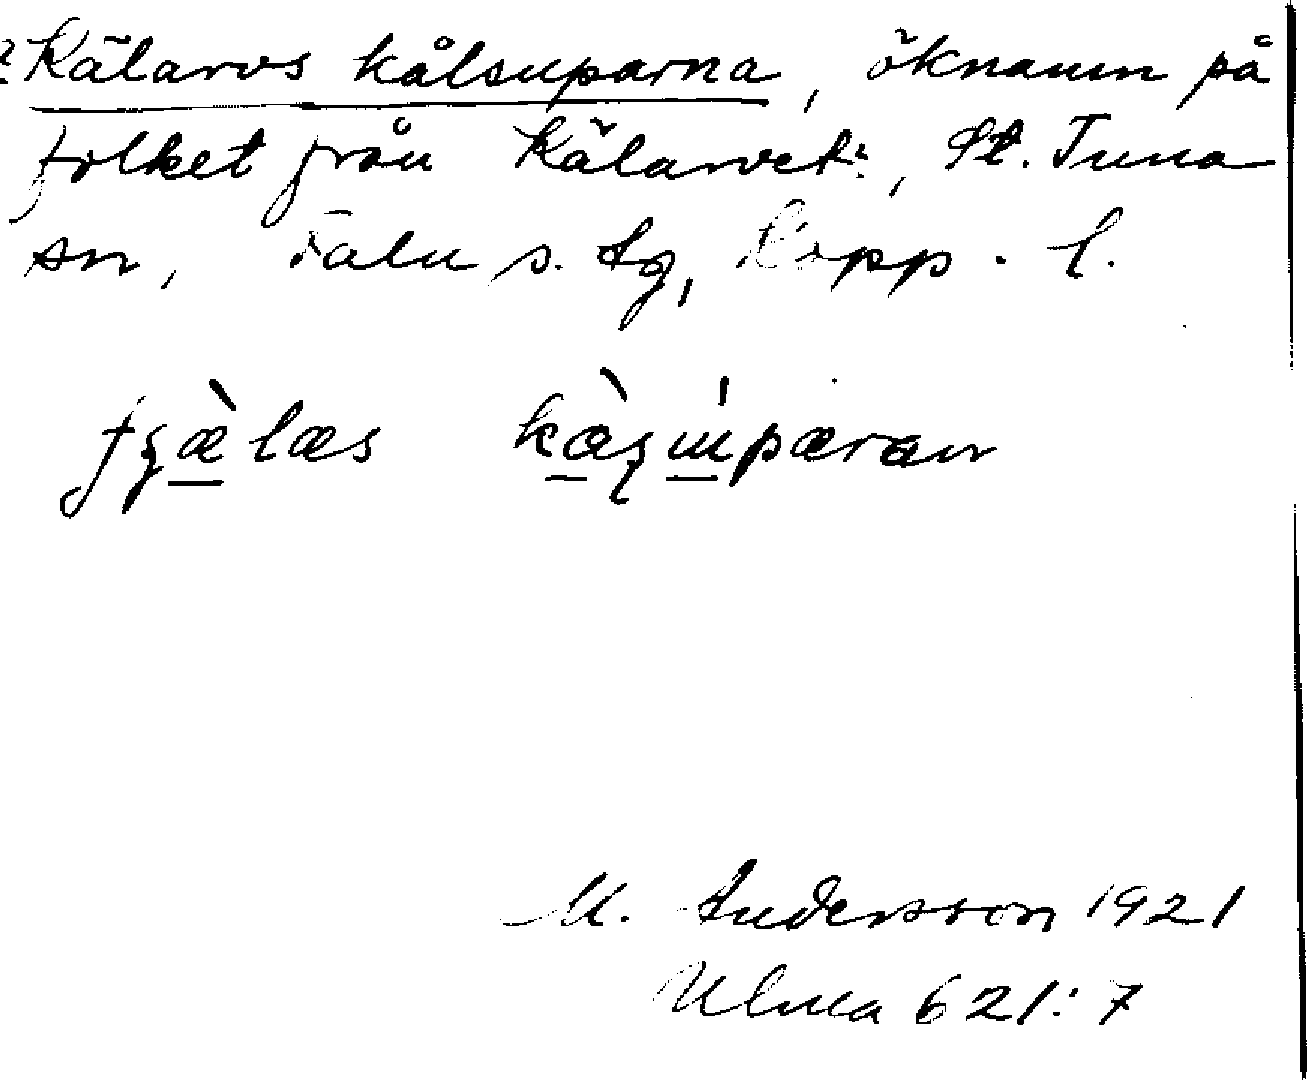 ? Kälarvs kålsuparna, öknamn på
folket från Kälarvet?, St. Tuna
sn, Falu s. tg, Kopp. l.
M. Andersson 1921
Ulma 621:7